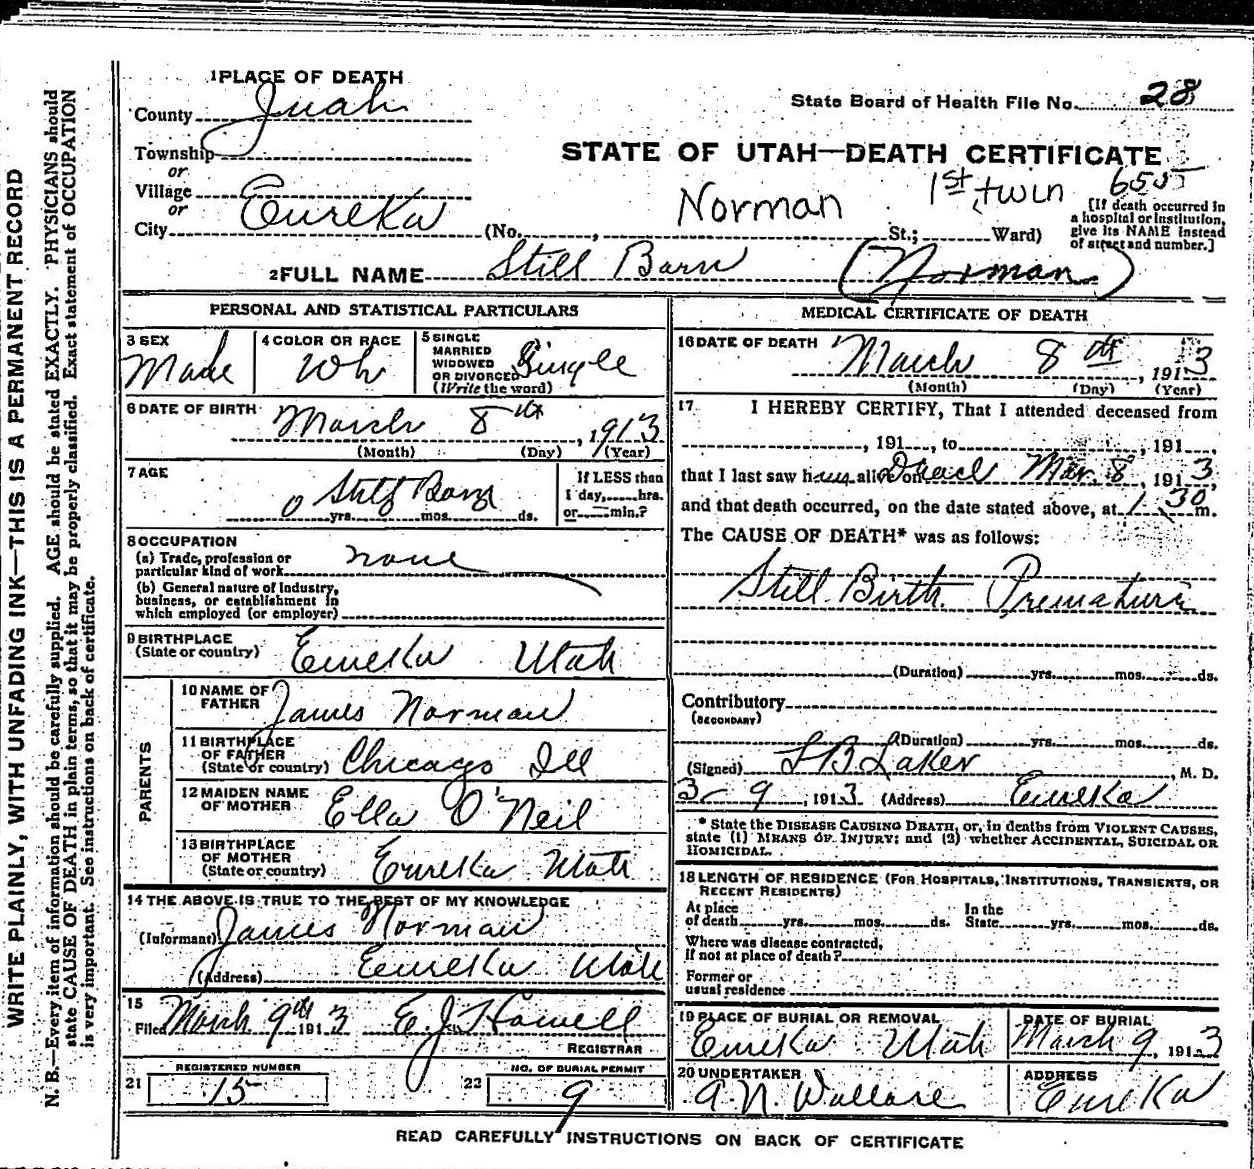 1 PLACE OF DEATH
County Juab
State Board of Health File No. 28
Township
or
STATE OF UTAH—DEATH CERTIFICATE
Village
or
City Eureka (No. , St.; Ward)
Norman 1st twin
[If death occurred in a hospital or institution, give its NAME instead of street and number.]
2 FULL NAME Still Born (Norman)
PERSONAL AND STATISTICAL PARTICULARS
3 SEX Male
4 COLOR OR RACE Wh
5 SINGLE MARRIED WIDOWED OR DIVORCED (Write the word) Single
6 DATE OF BIRTH March 8th, 1913
(Month) (Day) (Year)
7 AGE 0 Still Born
yrs. mos. ds.
If LESS than 1 day, hrs. or min.?
8 OCCUPATION
(a) Trade, profession or particular kind of work none
(b) General nature of industry, business, or establishment in which employed (or employer)
9 BIRTHPLACE
(State or country) Eureka Utah
PARENTS
10 NAME OF FATHER James Norman
11 BIRTHPLACE OF FATHER
(State or country) Chicago Ill
12 MAIDEN NAME OF MOTHER Ella O'Neil
13 BIRTHPLACE OF MOTHER
(State or country) Eureka Utah
14 THE ABOVE IS TRUE TO THE BEST OF MY KNOWLEDGE
(Informant) James Norman
(Address) Eureka Utah
15
Filed March 9th 1913 E. J. Howell
REGISTRAR
21 REGISTERED NUMBER 15
22 NO. OF BURIAL PERMIT 9
MEDICAL CERTIFICATE OF DEATH
16 DATE OF DEATH March 8th, 1913
(Month) (Day) (Year)
17 I HEREBY CERTIFY, That I attended deceased from
, 191 , to , 191
that I last saw h alive on Mar. 8, 1913
and that death occurred, on the date stated above, at 1.30 m.
The CAUSE OF DEATH* was as follows:
Still Birth Premature
(Duration) yrs. mos. ds.
Contributory
(SECONDARY)
(Duration) yrs. mos. ds.
(Signed) Laker, M. D.
3-9, 1913 (Address) Eureka
* State the DISEASE CAUSING DEATH, or, in deaths from VIOLENT CAUSES, state (1) MEANS OF INJURY; and (2) whether ACCIDENTAL, SUICIDAL OR HOMICIDAL.
18 LENGTH OF RESIDENCE (FOR HOSPITALS, INSTITUTIONS, TRANSIENTS, OR RECENT RESIDENTS)
At place of death yrs. mos. ds. In the State yrs. mos. ds.
Where was disease contracted, if not at place of death?
Former or usual residence
19 PLACE OF BURIAL OR REMOVAL Eureka Utah
DATE OF BURIAL March 9, 1913
20 UNDERTAKER A. N. Wallace
ADDRESS Eureka
READ CAREFULLY INSTRUCTIONS ON BACK OF CERTIFICATE
WRITE PLAINLY, WITH UNFADING INK—THIS IS A PERMANENT RECORD
N. B.—Every item of information should be carefully supplied. AGE should be stated EXACTLY. PHYSICIANS should
state CAUSE OF DEATH in plain terms, so that it may be properly classified. Exact statement of OCCUPATION
is very important. See instructions on back of certificate.